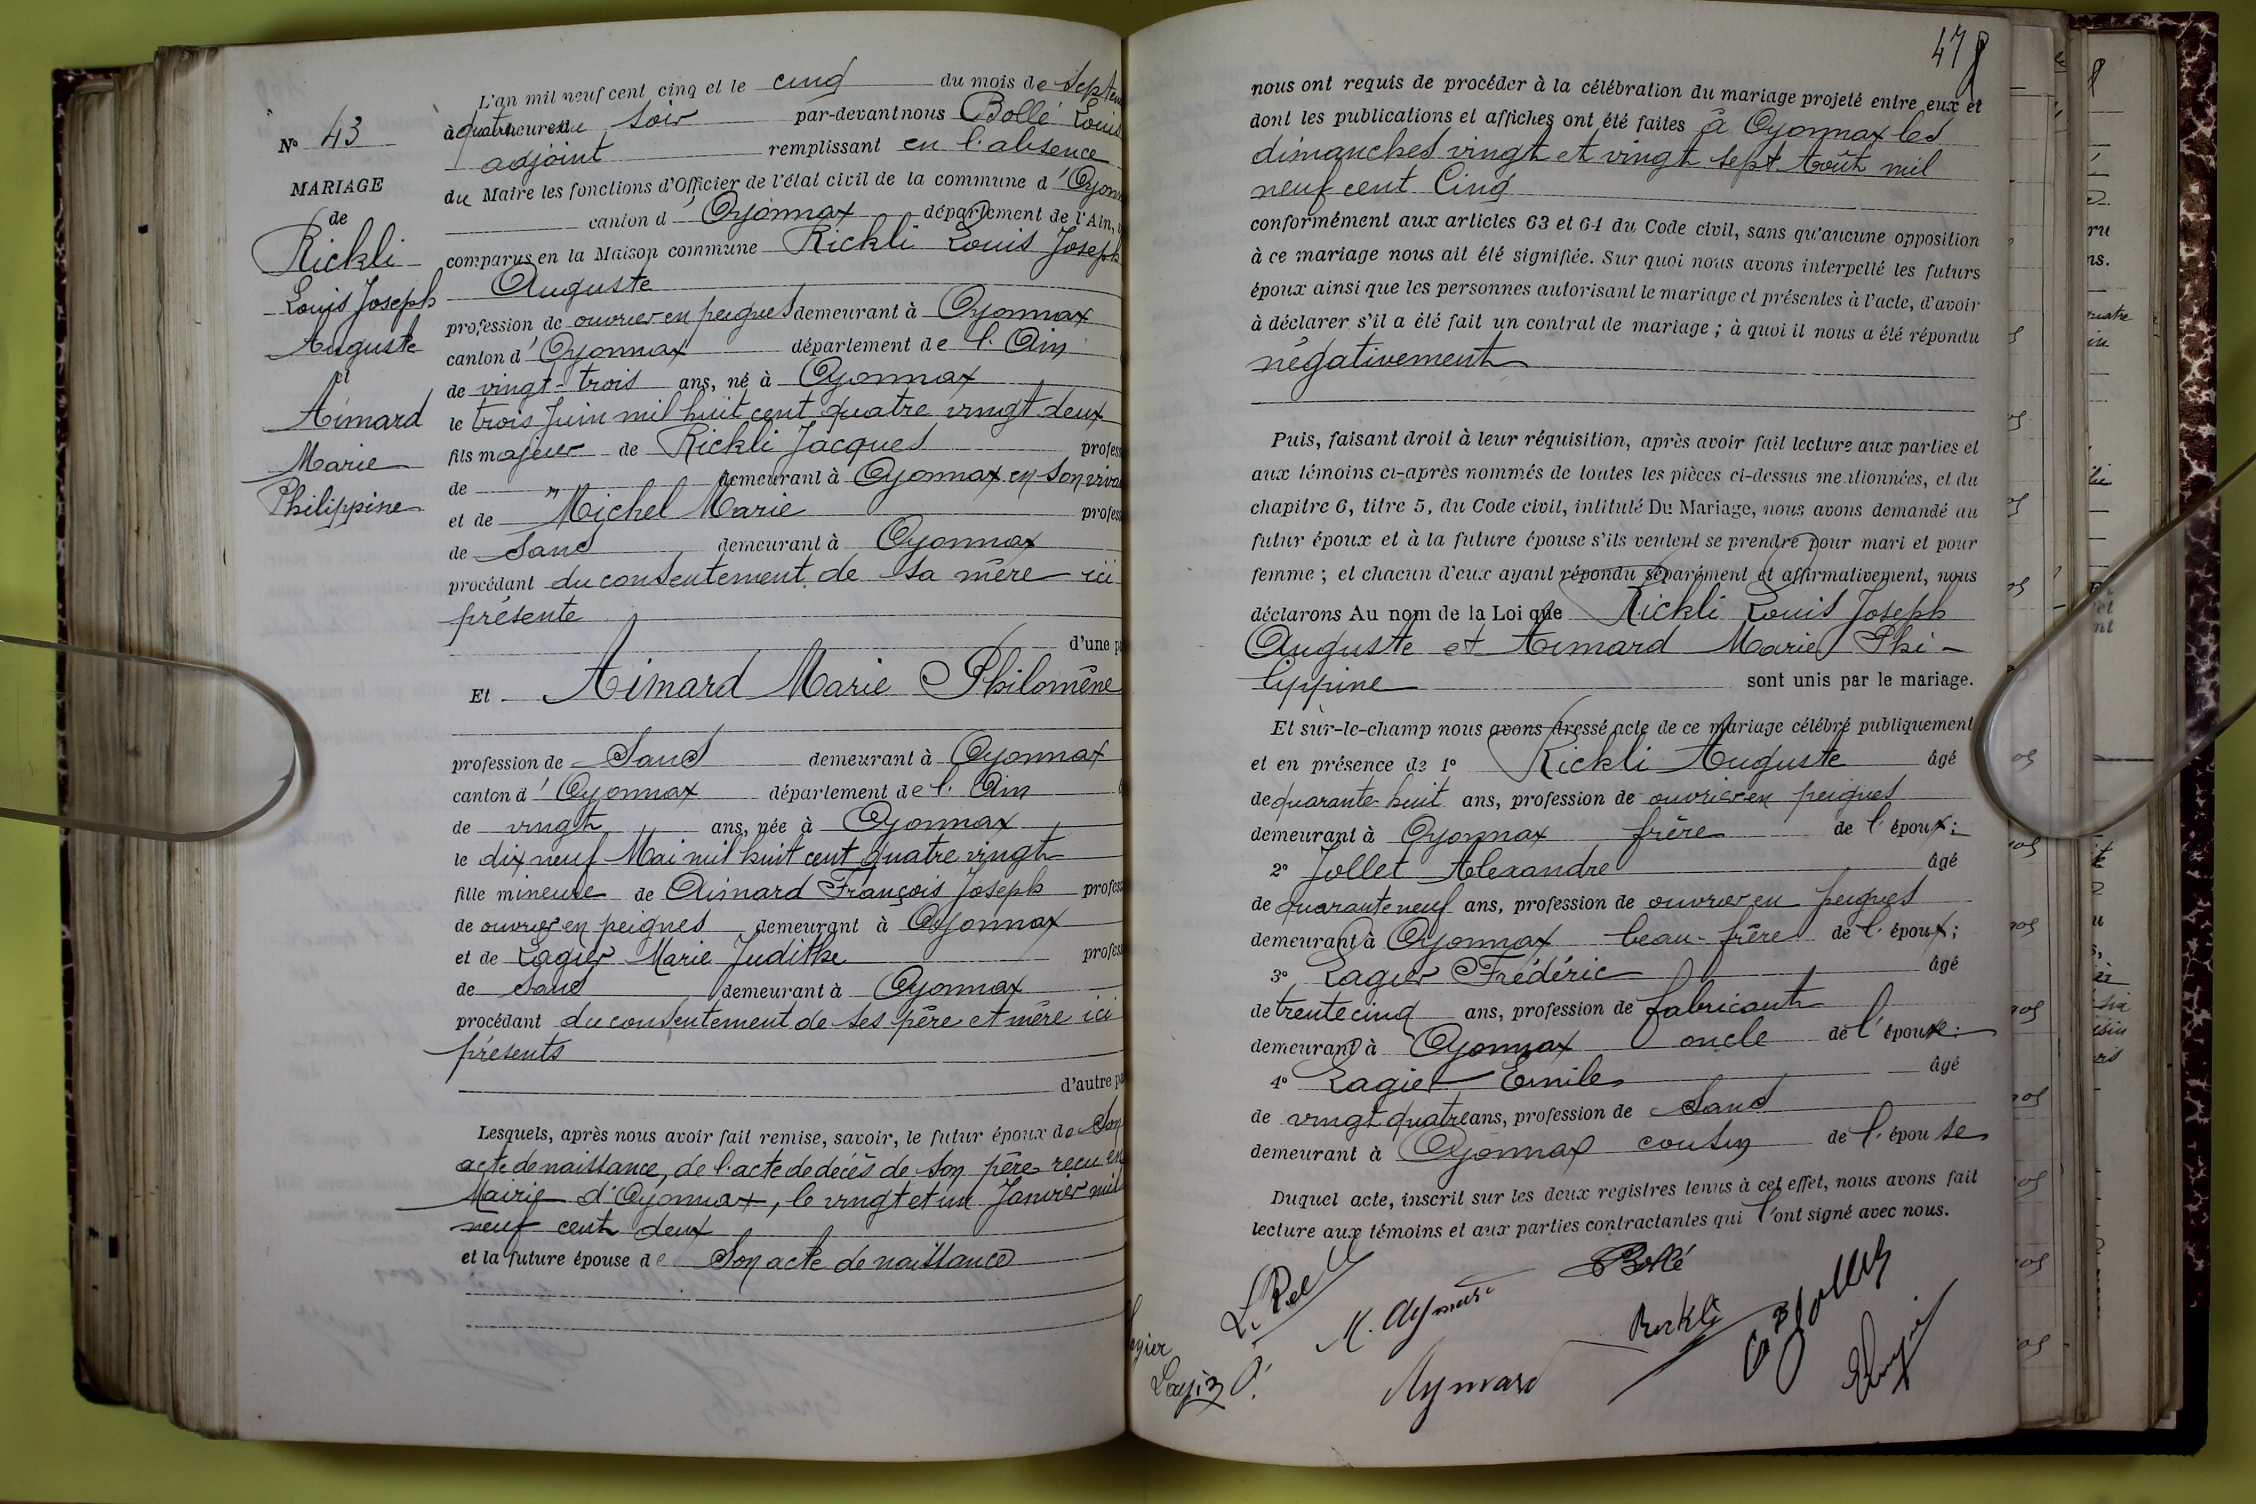 L'an mil neuf cent cinq et le cinq du mois de Septem
N° 43
à quatre heures du soir par-devant nous Bollé Louis
adjoint remplissant en l'absence
MARIAGE
du Maire les fonctions d'Officier de l'état civil de la commune d'Oyonn
de
canton d'Oyonnax département de l'Ain,
Rickli
comparus en la Maison commune Rickli Louis Joseph
Louis Joseph
Auguste
profession de ouvrier en peignes demeurant à Oyonnax
Auguste
canton d'Oyonnax département de l'Ain
et
de vingt-trois ans, né à Oyonnax
Aimard
le trois Juin mil huit cent quatre vingt deux
fils majeur de Rickli Jacques profess
Marie
de " demeurant à Oyonnax en son viva
Philippine
et de Michel Marie profess
de Sans demeurant à Oyonnax
procédant du consentement de sa mère ici
présente
d'une pa
Et Aimard Marie Philomène
profession de Sans demeurant à Oyonnax
canton d'Oyonnax département de l'Ain
de vingt ans, née à Oyonnax
le dix neuf Mai mil huit cent quatre vingt
fille mineure de Aimard François Joseph profess
de ouvrier en peignes demeurant à Oyonnax
et de Lagier Marie Judithe profess
de Sans demeurant à Oyonnax
procédant du consentement de ses père et mère ici
présents
d'autre pa
Lesquels, après nous avoir fait remise, savoir, le futur époux de Son
acte de naissance, de l'acte de décès de son père reçu en
Mairie d'Oyonnax, le vingt et un Janvier mil
neuf cent deux
et la future épouse de Son acte de naissance
478
nous ont requis de procéder à la célébration du mariage projeté entre eux et
dont les publications et affiches ont été faites à Oyonnax les
dimanches vingt et vingt sept Août mil
neuf cent Cinq
conformément aux articles 63 et 64 du Code civil, sans qu'aucune opposition
à ce mariage nous ait été signifiée. Sur quoi nous avons interpellé les futurs
époux ainsi que les personnes autorisant le mariage et présentes à l'acte, d'avoir
à déclarer s'il a été fait un contrat de mariage ; à quoi il nous a été répondu
négativement
Puis, faisant droit à leur réquisition, après avoir fait lecture aux parties et
aux témoins ci-après nommés de toutes les pièces ci-dessus mentionnées, et du
chapitre 6, titre 5, du Code civil, intitulé Du Mariage, nous avons demandé au
futur époux et à la future épouse s'ils veulent se prendre pour mari et pour
femme ; et chacun d'eux ayant répondu séparément et affirmativement, nous
déclarons Au nom de la Loi que Rickli Louis Joseph
Auguste et Aimard Marie Phi-
lippine sont unis par le mariage.
Et sur-le-champ nous avons dressé acte de ce mariage célébré publiquement
et en présence de 1° Rickli Auguste âgé
de quarante-huit ans, profession de ouvrier en peignes
demeurant à Oyonnax frère de l'époux ;
2° Jollet Alexandre âgé
de quarante neuf ans, profession de ouvrier en peignes
demeurant à Oyonnax beau-frère de l'époux ;
3° Lagier Frédéric âgé
de trente cinq ans, profession de fabricant
demeurant à Oyonnax oncle de l'épouse ;
4° Lagier Emile âgé
de vingt quatre ans, profession de Sans
demeurant à Oyonnax cousin de l'épouse
Duquel acte, inscrit sur les deux registres tenus à cet effet, nous avons fait
lecture aux témoins et aux parties contractantes qui l'ont signé avec nous.
Bollé
M. Aymard
Rickli
Lagier
Aymard